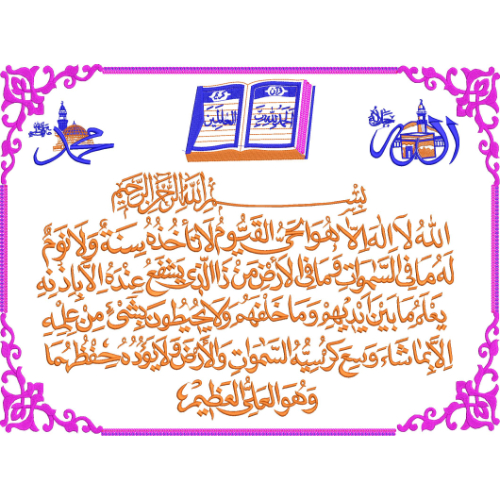 محمد
الحمد لله رب
العلمين
الله
بِسْمِ اللهِ الرَّحْمٰنِ الرَّحِيْمِ
اَللهُ لَا اِلٰهَ اِلَّا هُوَ الْحَىُّ الْقَيُّوْمُ لَا تَأْخُذُهٗ سِنَةٌ وَّلَا نَوْمٌ
لَهٗ مَا فِى السَّمٰوَاتِ وَمَا فِى الْاَرْضِ مَنْ ذَا الَّذِىْ يَشْفَعُ عِنْدَهٗ اِلَّا بِاِذْنِهٖ
يَعْلَمُ مَا بَيْنَ اَيْدِيْهِمْ وَمَا خَلْفَهُمْ وَلَا يُحِيْطُوْنَ بِشَىْءٍ مِّنْ عِلْمِهٖ
اِلَّا بِمَا شَاءَ وَسِعَ كُرْسِيُّهُ السَّمٰوَاتِ وَالْاَرْضَ وَلَا يَؤُدُهٗ حِفْظُهُمَا
وَهُوَ الْعَلِىُّ الْعَظِيْمُ